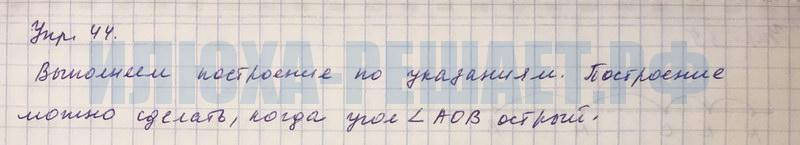 Упр. 44.
ИЛЮХА-РЕШАЕТ.РФ
Выполняем построение по указаниям. Построение
можно сделать, когда угол ∠AOB острый.